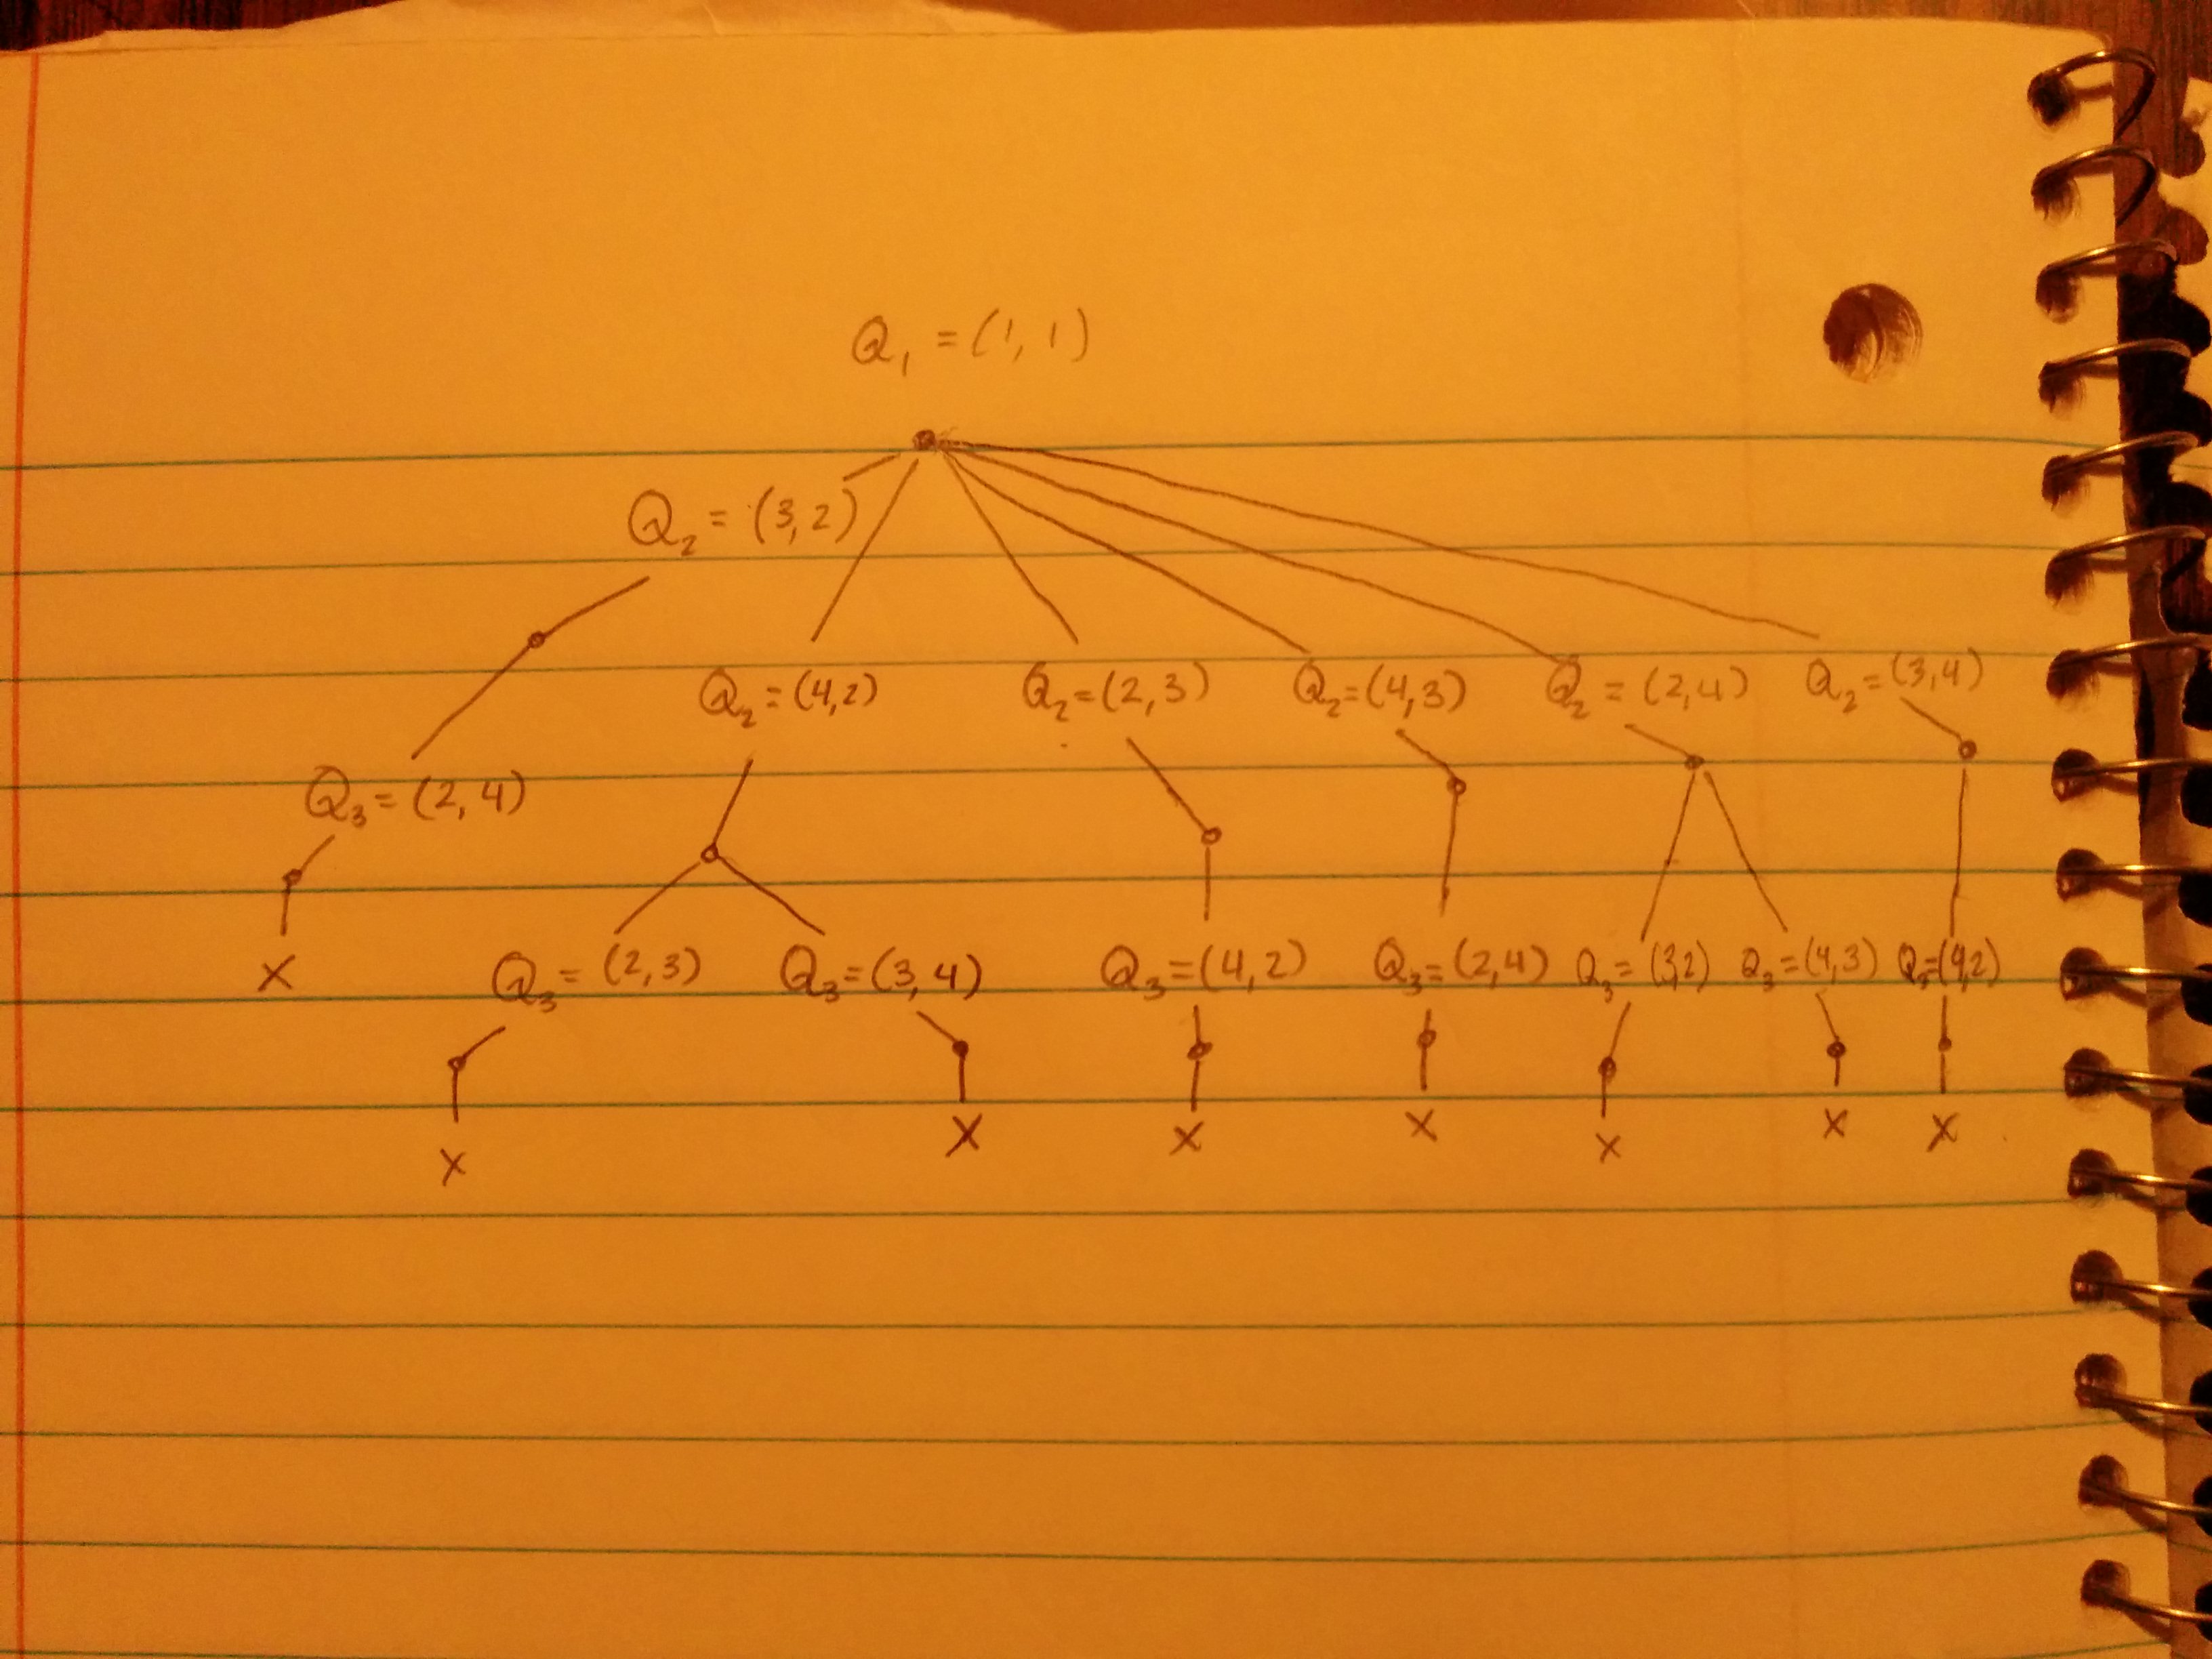 Q₁ = (1, 1)
Q₂ = (3, 2)
Q₂ = (4, 2) Q₂ = (2, 3) Q₂ = (4, 3) Q₂ = (2, 4) Q₂ = (3, 4)
Q₃ = (2, 4)
X Q₃ = (2, 3) Q₃ = (3, 4) Q₃ = (4, 2) Q₃ = (2, 4) Q₃ = (3, 2) Q₃ = (4, 3) Q₃ = (4, 2)
X X X X X X X